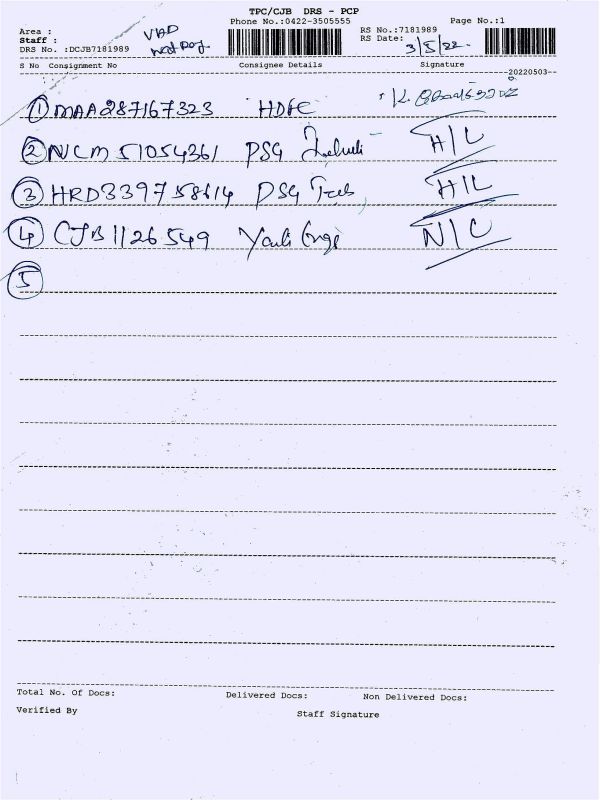 TPC/CJB DRS - PCP
Phone No.:0422-3505555 Page No.:1
Area : VAD
Staff :
RS No.:7181989
DRS No. :DCJB7181989
RS Date: 3/5/22.
S No Consignment No Consignee Details Signature
--20220503--
① MAA287167323 HDFC
② NCM 51054361 PSG H/L
③ HRD339758614 PSG H/L
④ CJB1126549 N/C
⑤
Total No. Of Docs: Delivered Docs: Non Delivered Docs:
Verified By Staff Signature